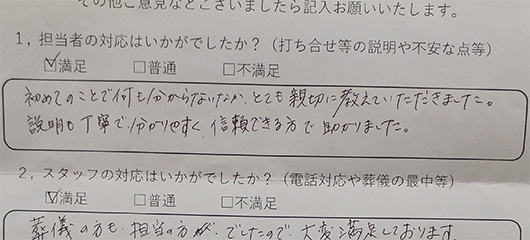 その他ご意見などございましたら記入お願いいたします。
1, 担当者の対応はいかがでしたか？（打ち合せ等の説明や不安な点等）
☑満足 □普通 □不満足
初めてのことで何も分からないなか、とても親切に教えていただきました。
説明も丁寧で分かりやすく、信頼できる方で助かりました。
2, スタッフの対応はいかがでしたか？（電話対応や葬儀の最中等）
☑満足 □普通 □不満足
葬儀の方も、担当の方が、でしたので、大変満足しております